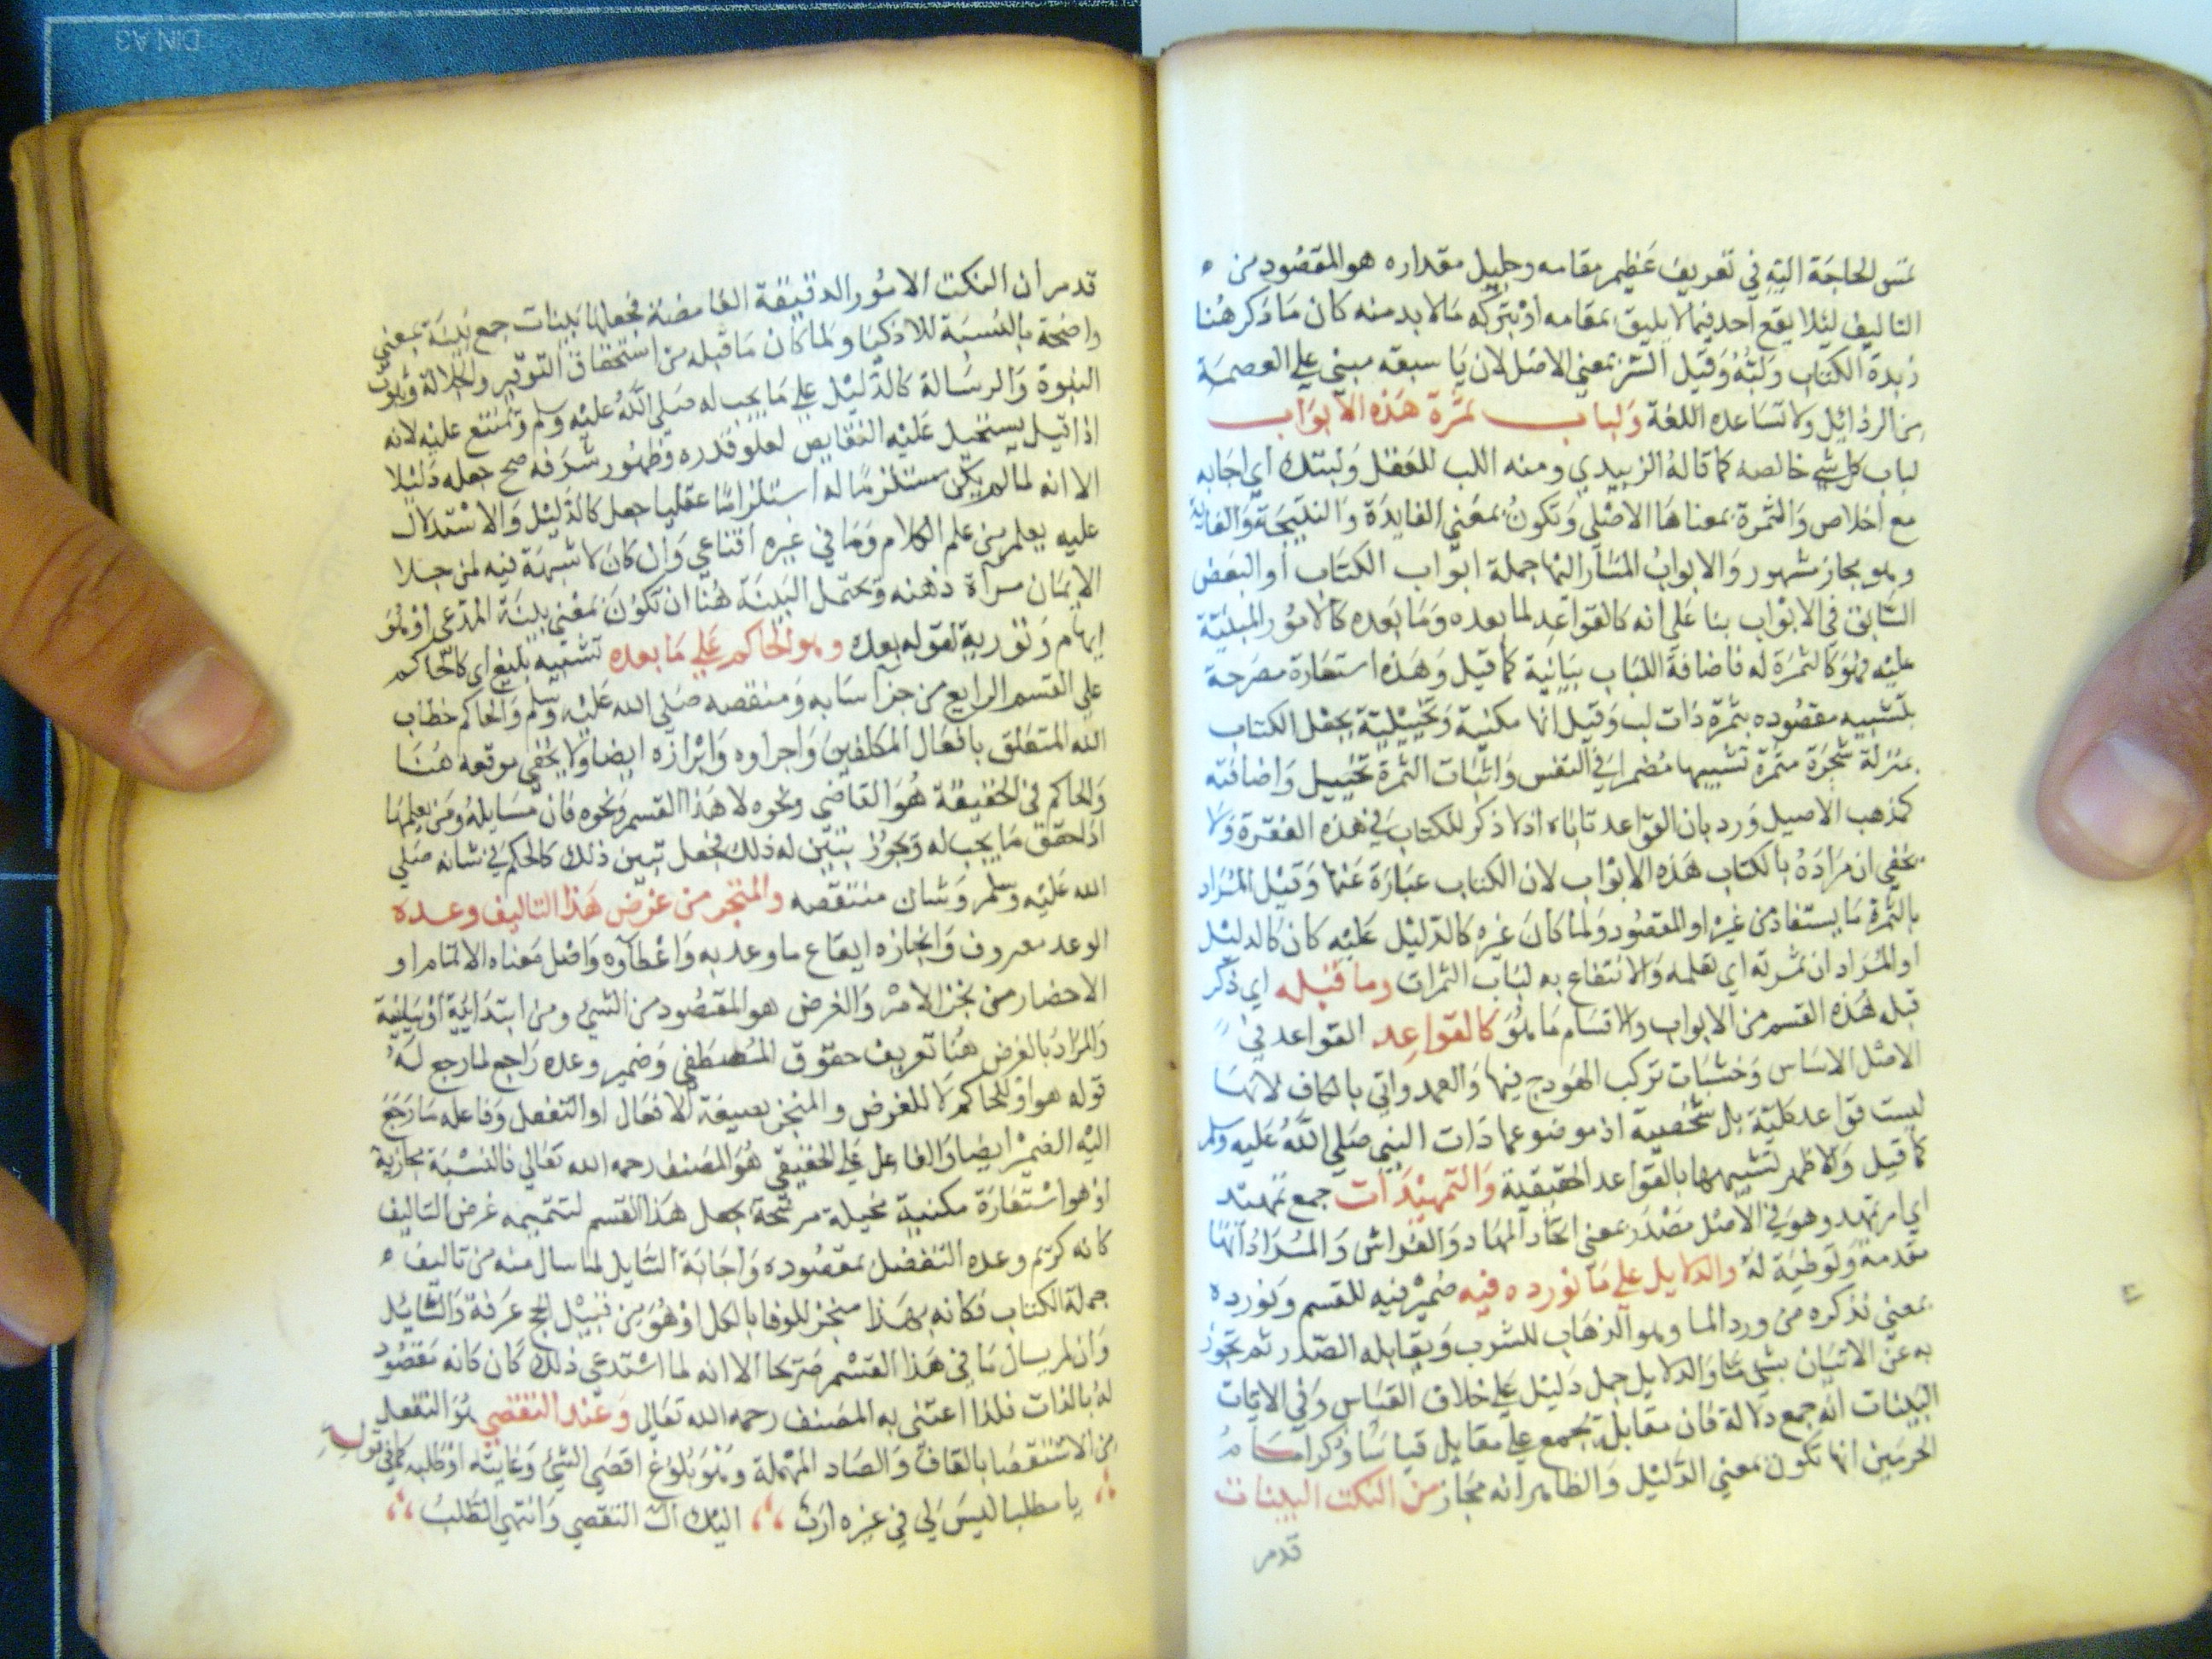 تمس الحاجة اليه في تعريف عظيم مقامه وجليل مقداره هو المقصود من
التاليف ليلا يقع احد فيما لا يليق بمقامه او بتركه ما لا بد منه كان ما ذكر هنا
زبدة الكتاب ولبه وقيل السر بمعنى الاصل لان يا سبعة مبني على العصمة
من الرذائل ولا تساعده اللغة ولباب ثمرة هذه الابواب
لباب كل شي خالصه كما قاله الزبيدي ومنه اللب للعقل ولبتك اي اجابه
مع اخلاص والثمرة بمعناها الاصلي وتكون بمعنى الفايدة والنتيجة والغاية
وهو مجاز مشهور والابواب المشار اليها جملة ابواب الكتاب او البعض
السابق في الابواب بنا على انه كالقواعد لما بعده وما بعده كالامور المبنية
عليه فهو كالثمرة له فاضافة اللباب بيانية كما قيل وهذه استعارة مصرحة
بتشبيه مقصوده بثمرة ذات لب وقيل انها مكنية وتخييلية بجعل الكتاب
بمنزلة شجرة مثمرة تشبيها مضمرا في النفس واثبات الثمرة تخييل واضافته
كمذهب الاصيل ورد بان القواعد تاباه اذ لا ذكر للكتاب في هذه الفقرة ولا
يخفى ان مراده بالكتاب هذه الابواب لان الكتاب عبارة عنها وقيل المراد
بالثمرة ما يستفاد من غيره او المقصود ولما كان غيره كالدليل عليه كان كالدليل
او المراد ان ثمرته اي تعلمه والانتفاع به لباب الثمرات وما قبله اي ذكر
قبله هذه القسم من الابواب والاقسام ما هو كالقواعد القواعد في
الاصل الاساس وخشبات تركب الهودج فيها والعمد واتي بالكاف لانها
ليست قواعد كلية بل شخصية اذ موضوعها ذات النبي صلى الله عليه وسلم
كما قيل والاظهر تشبيهها بالقواعد الحقيقية والتمهيدات جمع تمهيد
اي امر تمهد وهو في الاصل مصدر بمعنى اتخاذ المهاد والفراش والمراد انها
مقدمة وتوطية له والدلايل على ما نورده فيه ضمير فيه للقسم ونورده
بمعنى نذكره من ورد الما وهو الذهاب للشرب ويقابله الصدر ثم تجوز
به عن الاتيان بشي ما والدلايل جمل دليل على خلاف القياس وفي الايات
البينات انه جمع دلالة فان مقابلة يجمع على مقابل قياسا وذكر امام
الحرمين انها تكون بمعنى الدليل والظاهر انه مجاز من النكت البينات
قدمر
قدمر ان النكت الامور الدقيقة الغامضة فجعلها بينات جمع بينة بمعنى
واضحة بالنسبة للاذكيا ولما كان ما قبله من استحقاق التوقير والجلالة وثبوت
النبوة والرسالة كالدليل على ما يجب له صلى الله عليه وسلم وتمتنع عليه لانه
اذا قيل يستحيل عليه النقايص لعلو قدره وظهور شرفه صح جعله دليلا
الا انه لما لم يكن مستلزما له استلزاما عقليا جعل كالدليل والاستدلال
عليه يعلم من علم الكلام وما في غيره اقناعي وان كان لا شبهة فيه لمن جلا
الايمان مرآة ذهنه وتحتمل البينة هنا ان تكون بمعنى بينة المدعي او هو
ايهام وتورية لقوله بعده وهو الحاكم على ما بعده تشبيه بليغ اي كالحاكم
على القسم الرابع من جزآ سابه ومنقصه صلى الله عليه وسلم والحاكم خطاب
الله المتعلق بافعال المكلفين واجراوه وابرازه ايضا ولا يخفى موقعه هنا
والحاكم في الحقيقة هو القاضي ونحوه لا هذا القسم ونحوه فان مسايله ومن يعلمها
اذا حقق ما يجب له ويجوز تبين له ذلك فجعل تبين ذلك كالحكم في شانه صلى
الله عليه وسلم وشان منتقصه والمنجز من غرض هذا التاليف وعده
الوعد معروف وانجازه ايقاع ما وعد به واعطآوه واصل معناه الاتمام او
الاحضار من نجز الامر والغرض هو المقصود من الشي ومن ابتدائية او بيانية
والمراد بالغرض هنا تعريف حقوق المصطفى وضمير وعده راجع لما رجع له
قوله هو او للحاكم لا للغرض والمنجز بصيغة الافعال او التفعل وفاعله ما رجع
اليه الضمير ايضا والفاعل على الحقيقي هو المصنف رحمه الله تعالى فالنسبة مجازية
او هو استعارة مكنية مخيلة مرشحة بجعل هذا القسم لتتميمه غرض التاليف
كانه كرتم وعده التفضل بمقصوده واجابة السايل لما سال منه من تاليف
جملة الكتاب فكانه بهذا منجز للوفا بالكل او هو من قبيل الحج عرفة والسائل
وان لم يسال ما في هذا القسم صريحا الا انه لما استدعى ذلك كان كانه مقصود
له بالذات فلذا اعتنى به المصنف رحمه الله تعالى وعند التقصي هو التفعل
من الاستقصا بالقاف والصاد المهملة وهو بلوغ اقصى الشي وغايته او طلبه كما في قول
يا مطلبا ليس لي في غيره ارب اليك ال التقصي وانتهى الطلب